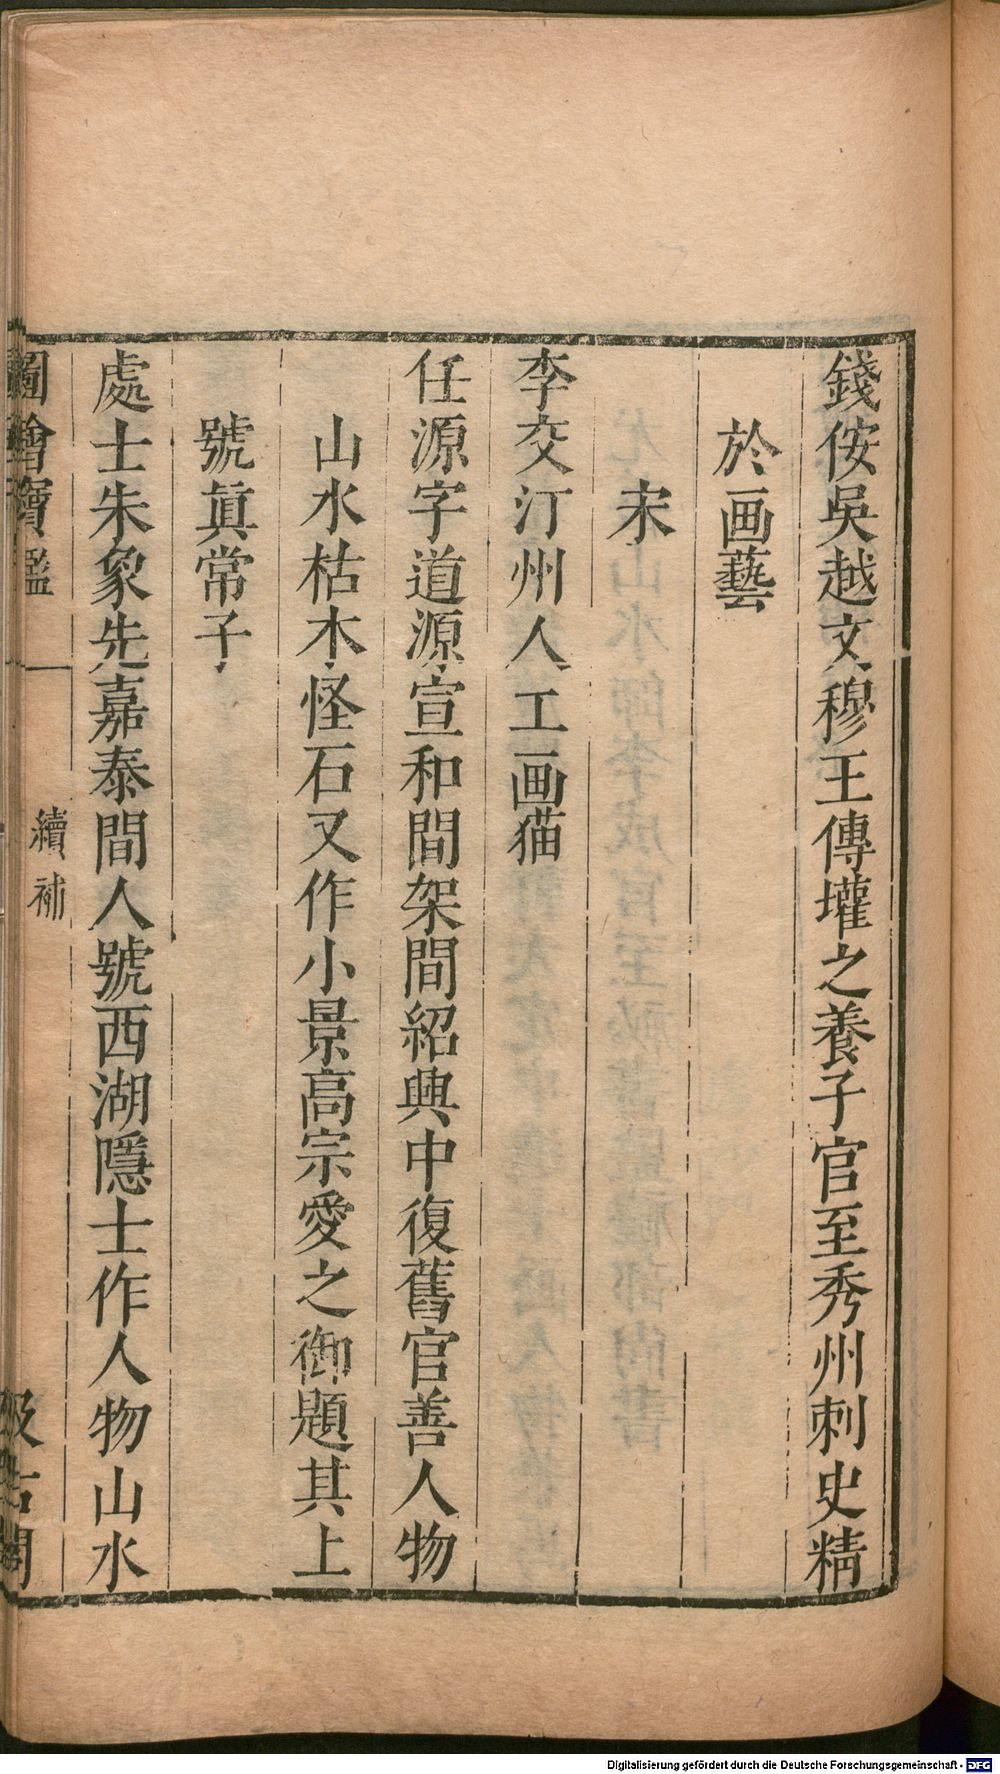 錢侒吳越文穆王傳瓘之養子官至秀州刺史精
於画藝
宋
李交汀州人工画猫
任源字道源宣和間架間紹興中復舊官善人物
山水枯木怪石又作小景高宗愛之御題其上
號眞常子
處士朱象先嘉泰間人號西湖隱士作人物山水
圖繪寶鑑 續補 汲古閣
Digitalisierung gefördert durch die Deutsche Forschungsgemeinschaft - DFG